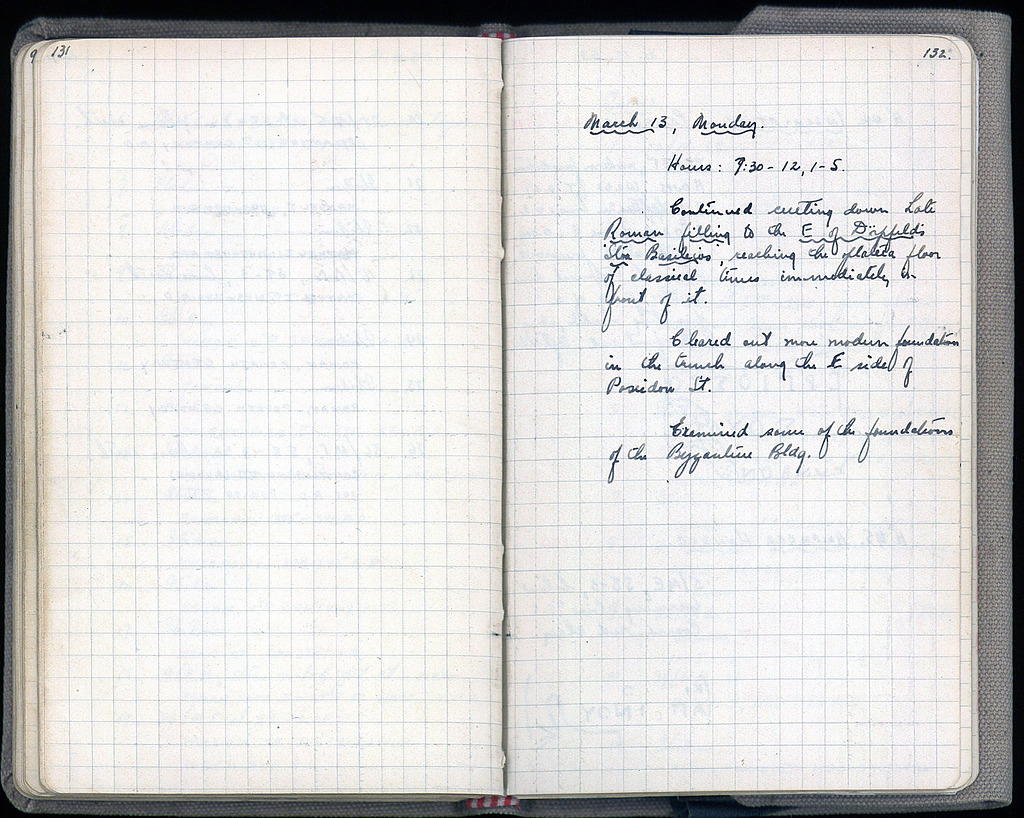 9
131
132.
March 13, Monday.
Hours: 7:30 - 12, 1-5.
Continued cutting down Late
Roman filling to the E of Dörpfeld's
'Stoa Basileios', reaching the plateia floor
of classical times immediately in
front of it.
Cleared out more modern foundations
in the trench along the E side of
Poseidon St.
Examined some of the foundations
of the Byzantine Bldg.